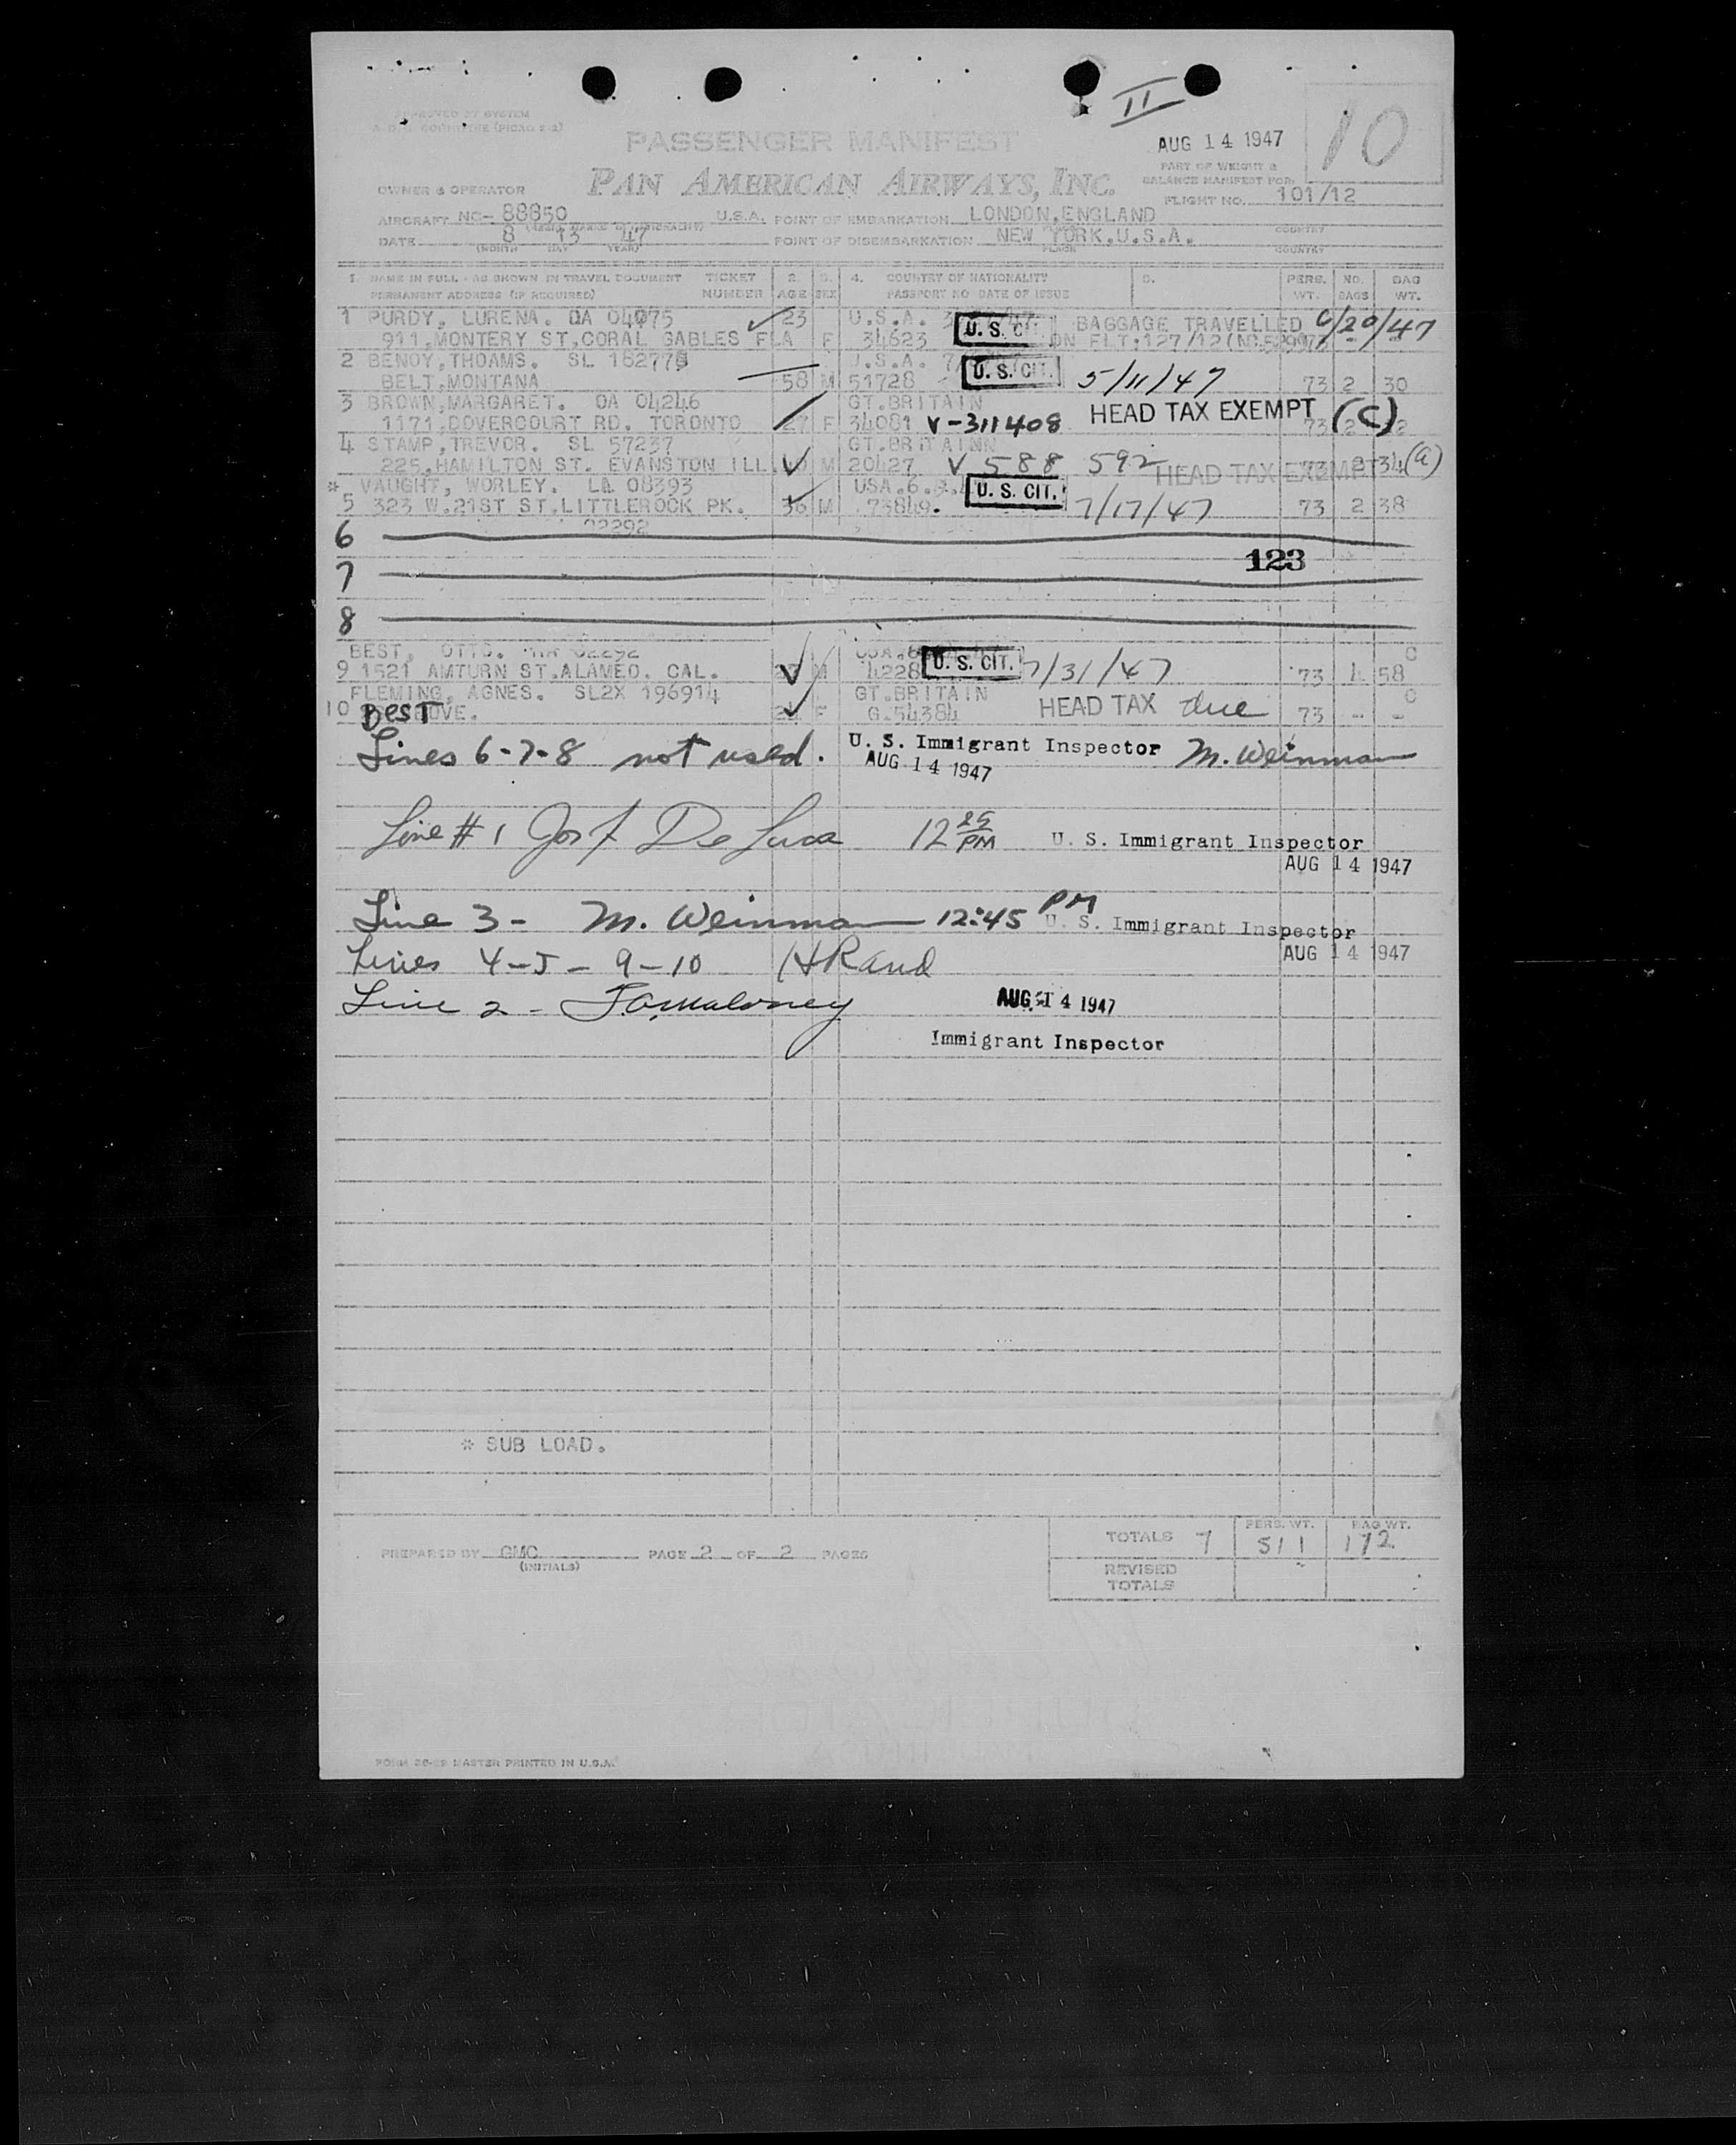 II
AUG 14 1947
10
PASSENGER MANIFEST
PART OF WEIGHT &
BALANCE MANIFEST FOR:
PAN AMERICAN AIRWAYS, INC.
OWNER & OPERATOR
FLIGHT NO. 101/12
AIRCRAFT NC- 88850 U.S.A. POINT OF EMBARKATION LONDON,ENGLAND COUNTRY
DATE 8 13 47 POINT OF DISEMBARKATION NEW YORK,U.S.A. COUNTRY
(MONTH DAY YEAR) PLACE
1. NAME IN FULL - AS SHOWN IN TRAVEL DOCUMENT TICKET 2. 3. 4. COUNTRY OF NATIONALITY 5. PERS. NO. BAG
PERMANENT ADDRESS (IF REQUIRED) NUMBER AGE SEX PASSPORT NO DATE OF ISSUE WT. BAGS WT.
1 PURDY, LURENA. OA 04075 23 U.S.A. U.S. CIT. BAGGAGE TRAVELLED 6/20/47
911,MONTERY ST,CORAL GABLES FLA F 34623 ON FLT:127/12
2 BENOY,THOAMS. SL 182778 U.S.A. U.S. CIT.
BELT,MONTANA 58 M 51728 5/11/47 73 2 30
3 BROWN,MARGARET. OA 04246 GT.BRITAIN HEAD TAX EXEMPT (C)
1171,DOVERCOURT RD. TORONTO 27 F 34081 V-311408 73 2
4 STAMP,TREVOR. SL 57237 GT.BRITAINN
225,HAMILTON ST. EVANSTON ILL. M 20427 V 588 592 HEAD TAX EXEMPT 2 34 (a)
* VAUGHT, WORLEY. LA 08393 USA.6. U.S. CIT.
5 323 W.21ST ST,LITTLEROCK PK. 36 M 73849. 7/17/47 73 2 38
6 02292
123
7
8
BEST, OTTO. 02292 U.S. CIT. C
9 1521 AMTURN ST.ALAMEO. CAL. M 4228 7/31/47 73 4 58
FLEMING, AGNES. SL2X 196914 GT.BRITAIN C
10 BEST ABOVE. F G.54384 HEAD TAX due 73 - -
Lines 6-7-8 not used. U. S. Immigrant Inspector M. Weinman
AUG 14 1947
Line # 1 Jos F De Luca 12 25 PM U. S. Immigrant Inspector
AUG 14 1947
Line 3 - M. Weinman 12:45 PM U. S. Immigrant Inspector
Lines 4-5-9-10 H Rand AUG 14 1947
Line 2 - J.O.Maloney AUG 14 1947
Immigrant Inspector
* SUB LOAD.
TOTALS 7 PERS. WT. 511 BAG WT. 172
PREPARED BY GMC PAGE 2 OF 2 PAGES
(INITIALS)
REVISED
TOTALS
MASTER PRINTED IN U.S.A.